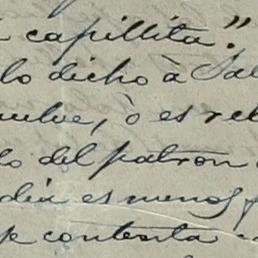 capillita."
lo dicho à Sal
uelve, ò es rel
lo del patron
dia es menos f
se contesta co